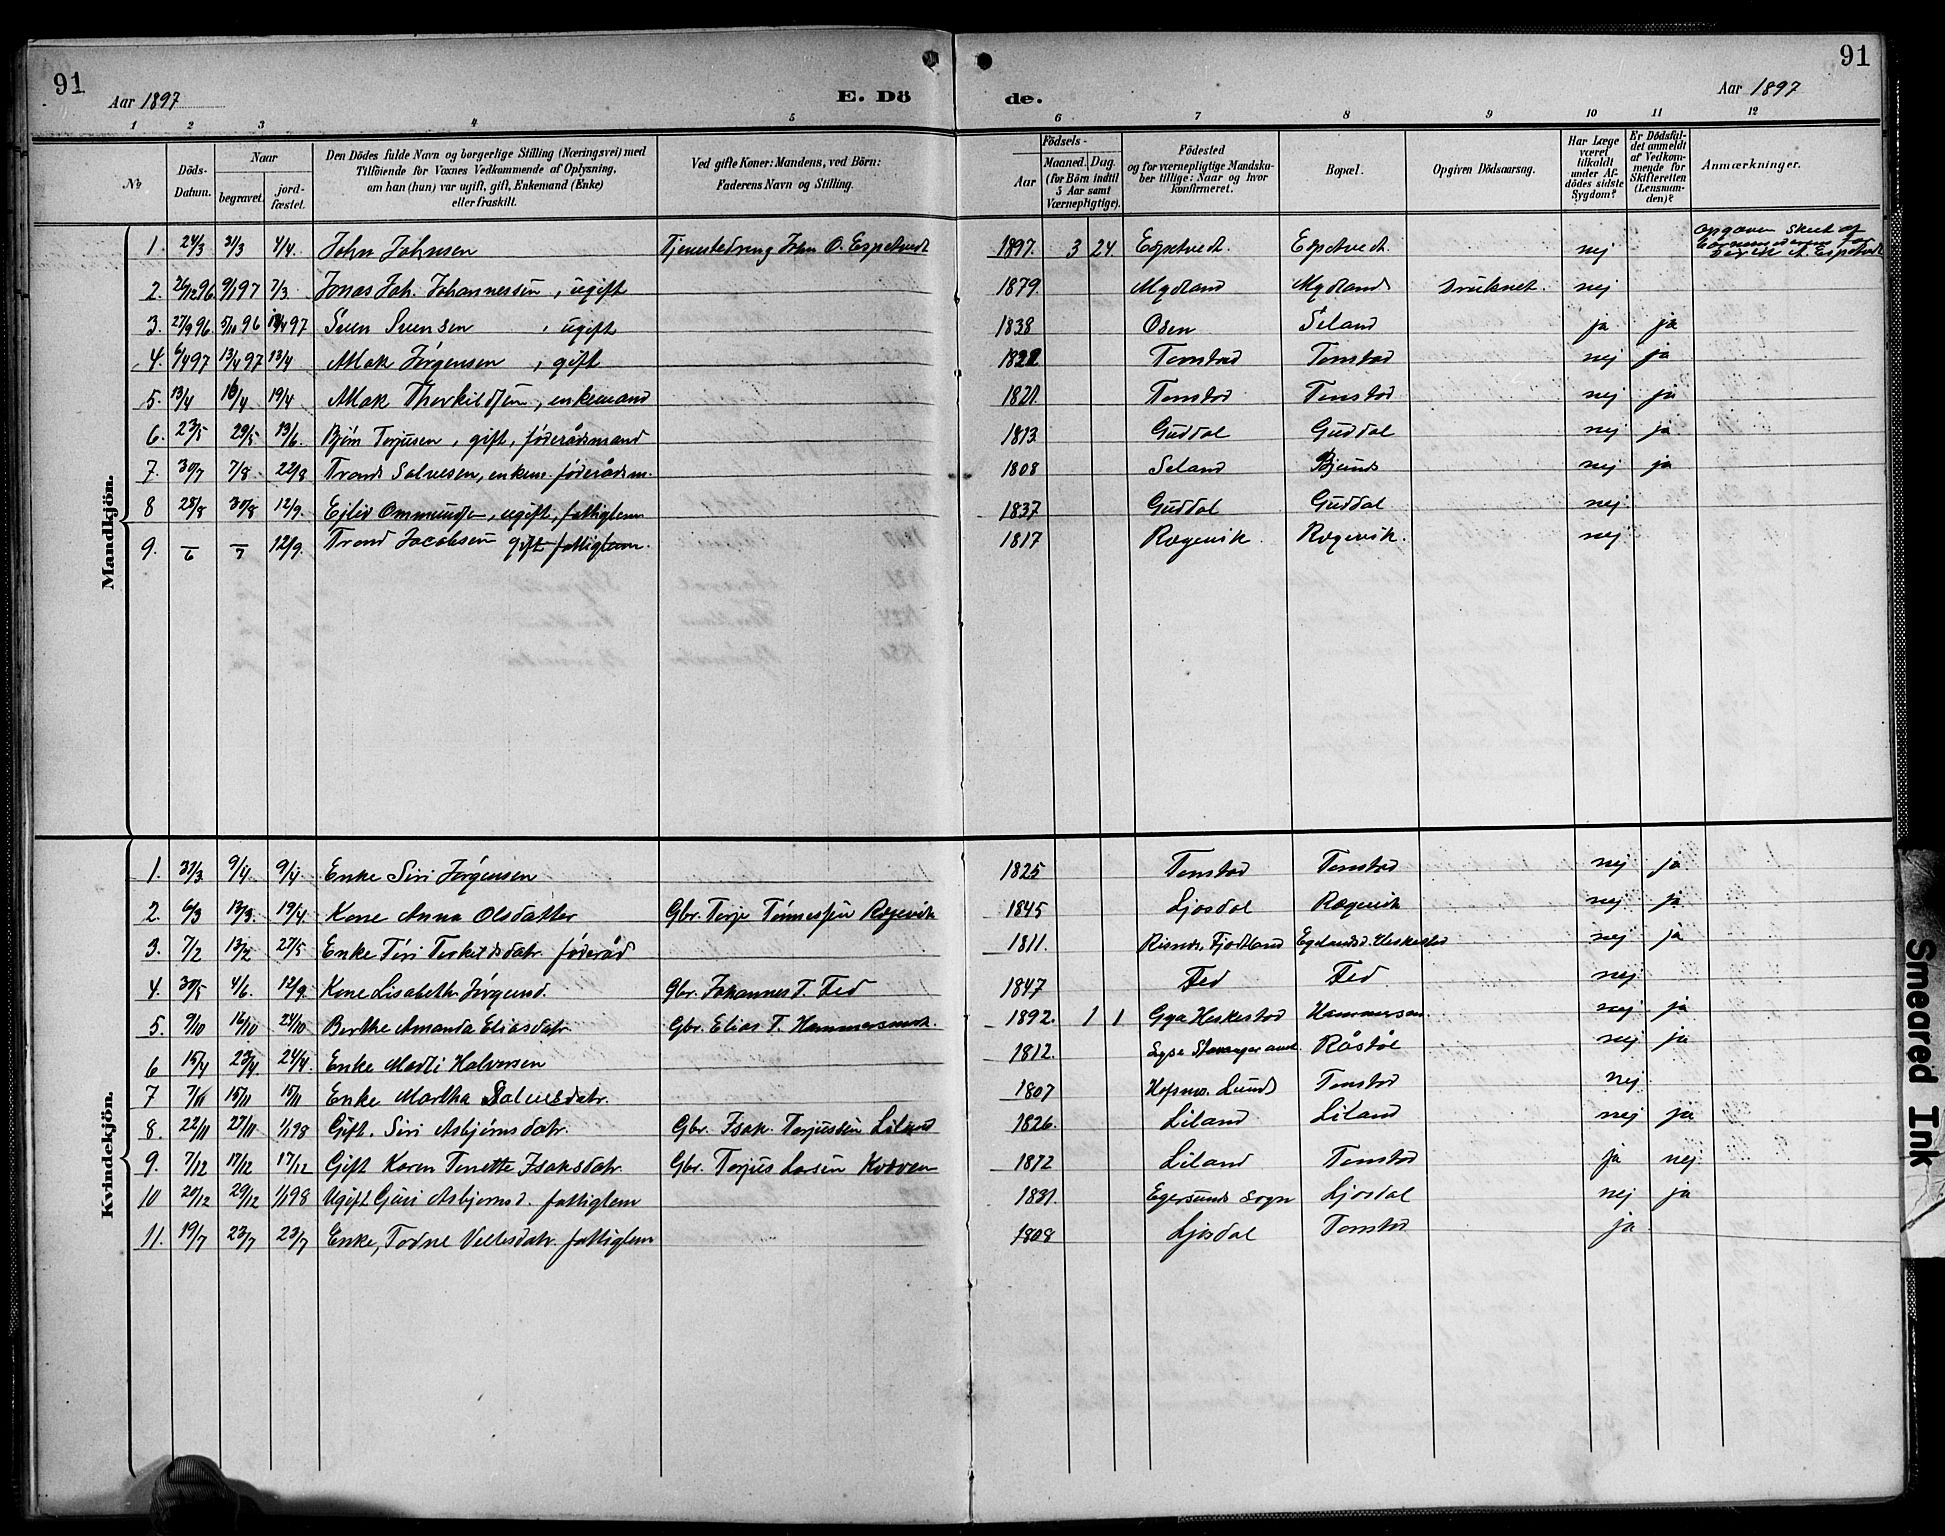 91
91
Aar 1897
E. Dö
de.
Aar 1897
1 2 3 4 5 6 7 8 9 10 11 12
No
Döds-Datum.
Naar
begravet.
jord-fæstet.
Den Dödes fulde Navn og borgerlige Stilling (Næringsvei) med
Tilföiende for Voxnes Vedkommende af Oplysning,
om han (hun) var ugift, gift, Enkemand (Enke)
eller fraskilt.
Ved gifte Koner: Mandens, ved Börn:
Faderens Navn og Stilling.
Födsels-
Aar
Maaned. Dag.
(for Börn indtil
5 Aar samt
Værnepligtige).
Födested
og for værnepligtige Mandska-
ber tillige: Naar og hvor
konfirmeret.
Bopæl.
Opgiven Dödsaarsag.
Har Læge
været
tilkaldt
under Af-
dödes sidste
Sygdom?
Er Dödsfal-
det anmeldt
af Vedkom-
mende for
Skifteretten
(Lensman-
den)?
Anmærkninger.
Mandkjön.
1. 24/3 31/3 4/4. John Johnsen Tjenestedreng John O. Espetvedt 1897. 3 24. Espetvedt. Espetvedt. nej Opgaven skeet af
2. 26/12 96 9/1 97 7/3 Jonas Joh. Johannessen, ugift 1879. Mydland Mydland Druknet. nej
3. 27/9 96 5/10 96 97 Sven Svensen, ugift 1838 Osen Seland ja ja
4. 6/4 97 13/4 97 13/4 Atlak Jørgensen, gift Tonstad Tonstad nej ja
5. 13/4 16/4 19/4 Atlak Thorkildsen, enkemand 1821. Tonstad Tonstad nej ja
6. 23/5 29/5 13/6. Bjørn Terjusen, gift, føderådsmand 1813 Guddal Guddal nej ja
7. 30/7 7/8. 22/8 Trond Salvesen, enkem. føderådsm. 1808 Seland Bjunds nej ja
8 25/8 30/8 12/9. Ejlev Ommundsen, ugift, fattiglem 1837 Guddal Guddal nej.
9. –/6 –/7 12/9. Trond Jacobsen gift fattiglem. 1817 Rægevik. Rægevik. nej
Kvindekjön.
1. 31/3 9/4. 9/4. Enke Siri Jørgensen 1825 Tonstad Tonstad nej ja
2. 6/3 13/3. 19/4 Kone Anna Olsdatter Gbr. Terje Tønnessen Rægevik 1845 Ljosdal Rægevik nej ja
3. 7/2 13/2 27/5 Enke Siri Terkildsdatr. føderåd 1811. Risnes. Fjotland Egelandsd. Heskestad nej ja
4. 30/5 4/6. 12/9. Kone Lisabeth Jørgensd. Gbr. Johannes T. Fed 1847 Fed Fed nej.
5. 9/10 16/10 24/10 Berthe Amanda Eliasdatr Gbr. Elias T. Hammersmark. 1892. 1 1 Gya Heskestad nej ja
6 15/4 23/4. 24/4. Enke Marti Halversen 1812. Lyse Stavanger amt. Råstøl nej ja
7 7/11 15/11 15/11 Enke Martha Salvesdatr. 1807 Hofsmo. Lund Tonstad nej
8. 22/11 27/11 1/1 98 Gift. Siri Asbjørnsdatr. Gbr. Isak. Terjussen Liland 1826. Liland Liland nej ja
9. 7/12 17/12 17/12 Gift Karen Tonette Isaksdatr. Gbr. Terjus Larsen Kvæven 1872 Liland Tonstad ja nej
10 20/12 29/12 1/1 98 Ugift Guri Asbjørnsd. fattiglem 1831. Egersunds sogn Ljosdal nej ja
11. 19/7 23/7 23/7 Enke, Todne Vellesdatr. fattiglem 1808 Ljosdal Tonstad ja
Smeared Ink